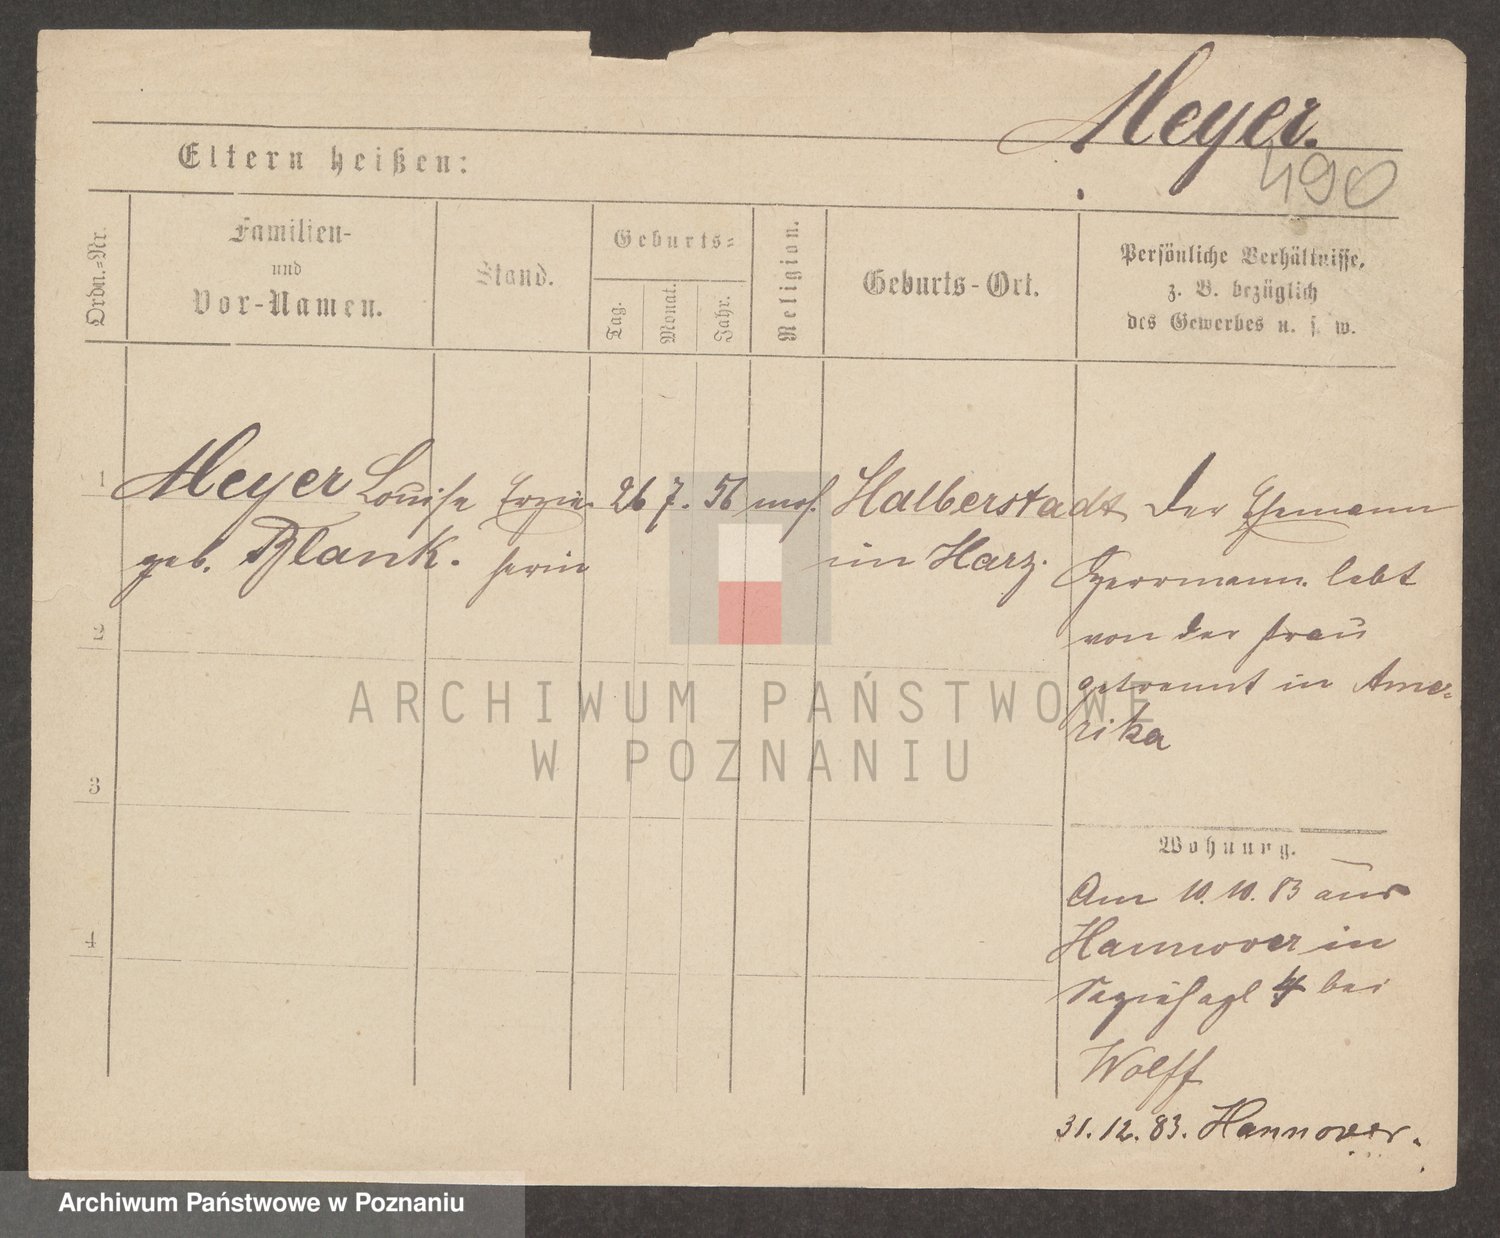 Meyer.
490
Eltern heißen:
Ordn.=Nr.
Familien-
und
Vor-Namen.
Stand.
Geburts=
Tag.
Monat.
Jahr.
Religion.
Geburts-Ort.
Persönliche Verhältnisse,
z. B. bezüglich
des Gewerbes u. s. w.
1
Meyer Louise Erzie- 26 7. 56 mos. Halberstadt Der Ehemann
geb. Blank. herin im Harz. Herrmann lebt
2
von der Frau
getrennt in Ame-
rika
3
Wohnung.
Am 10. 10. 83 aus
Hannover in
4
4 bei
Wolff
31. 12. 83. Hannover.
ARCHIWUM PAŃSTWOWE
W POZNANIU
Archiwum Państwowe w Poznaniu